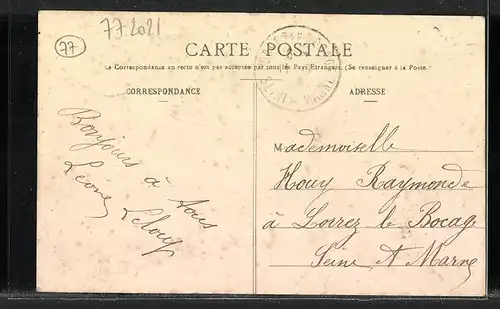 77 2021
77
CARTE POSTALE
La Correspondance au recto n'est pas acceptée par tous les Pays Etrangers. (Se renseigner à la Poste.)
CORRESPONDANCE
ADRESSE
Bonjours à tous
Léonie Leloup
Mademoiselle
Houy Raymonde
à Lorrez le Bocage
Seine et Marne